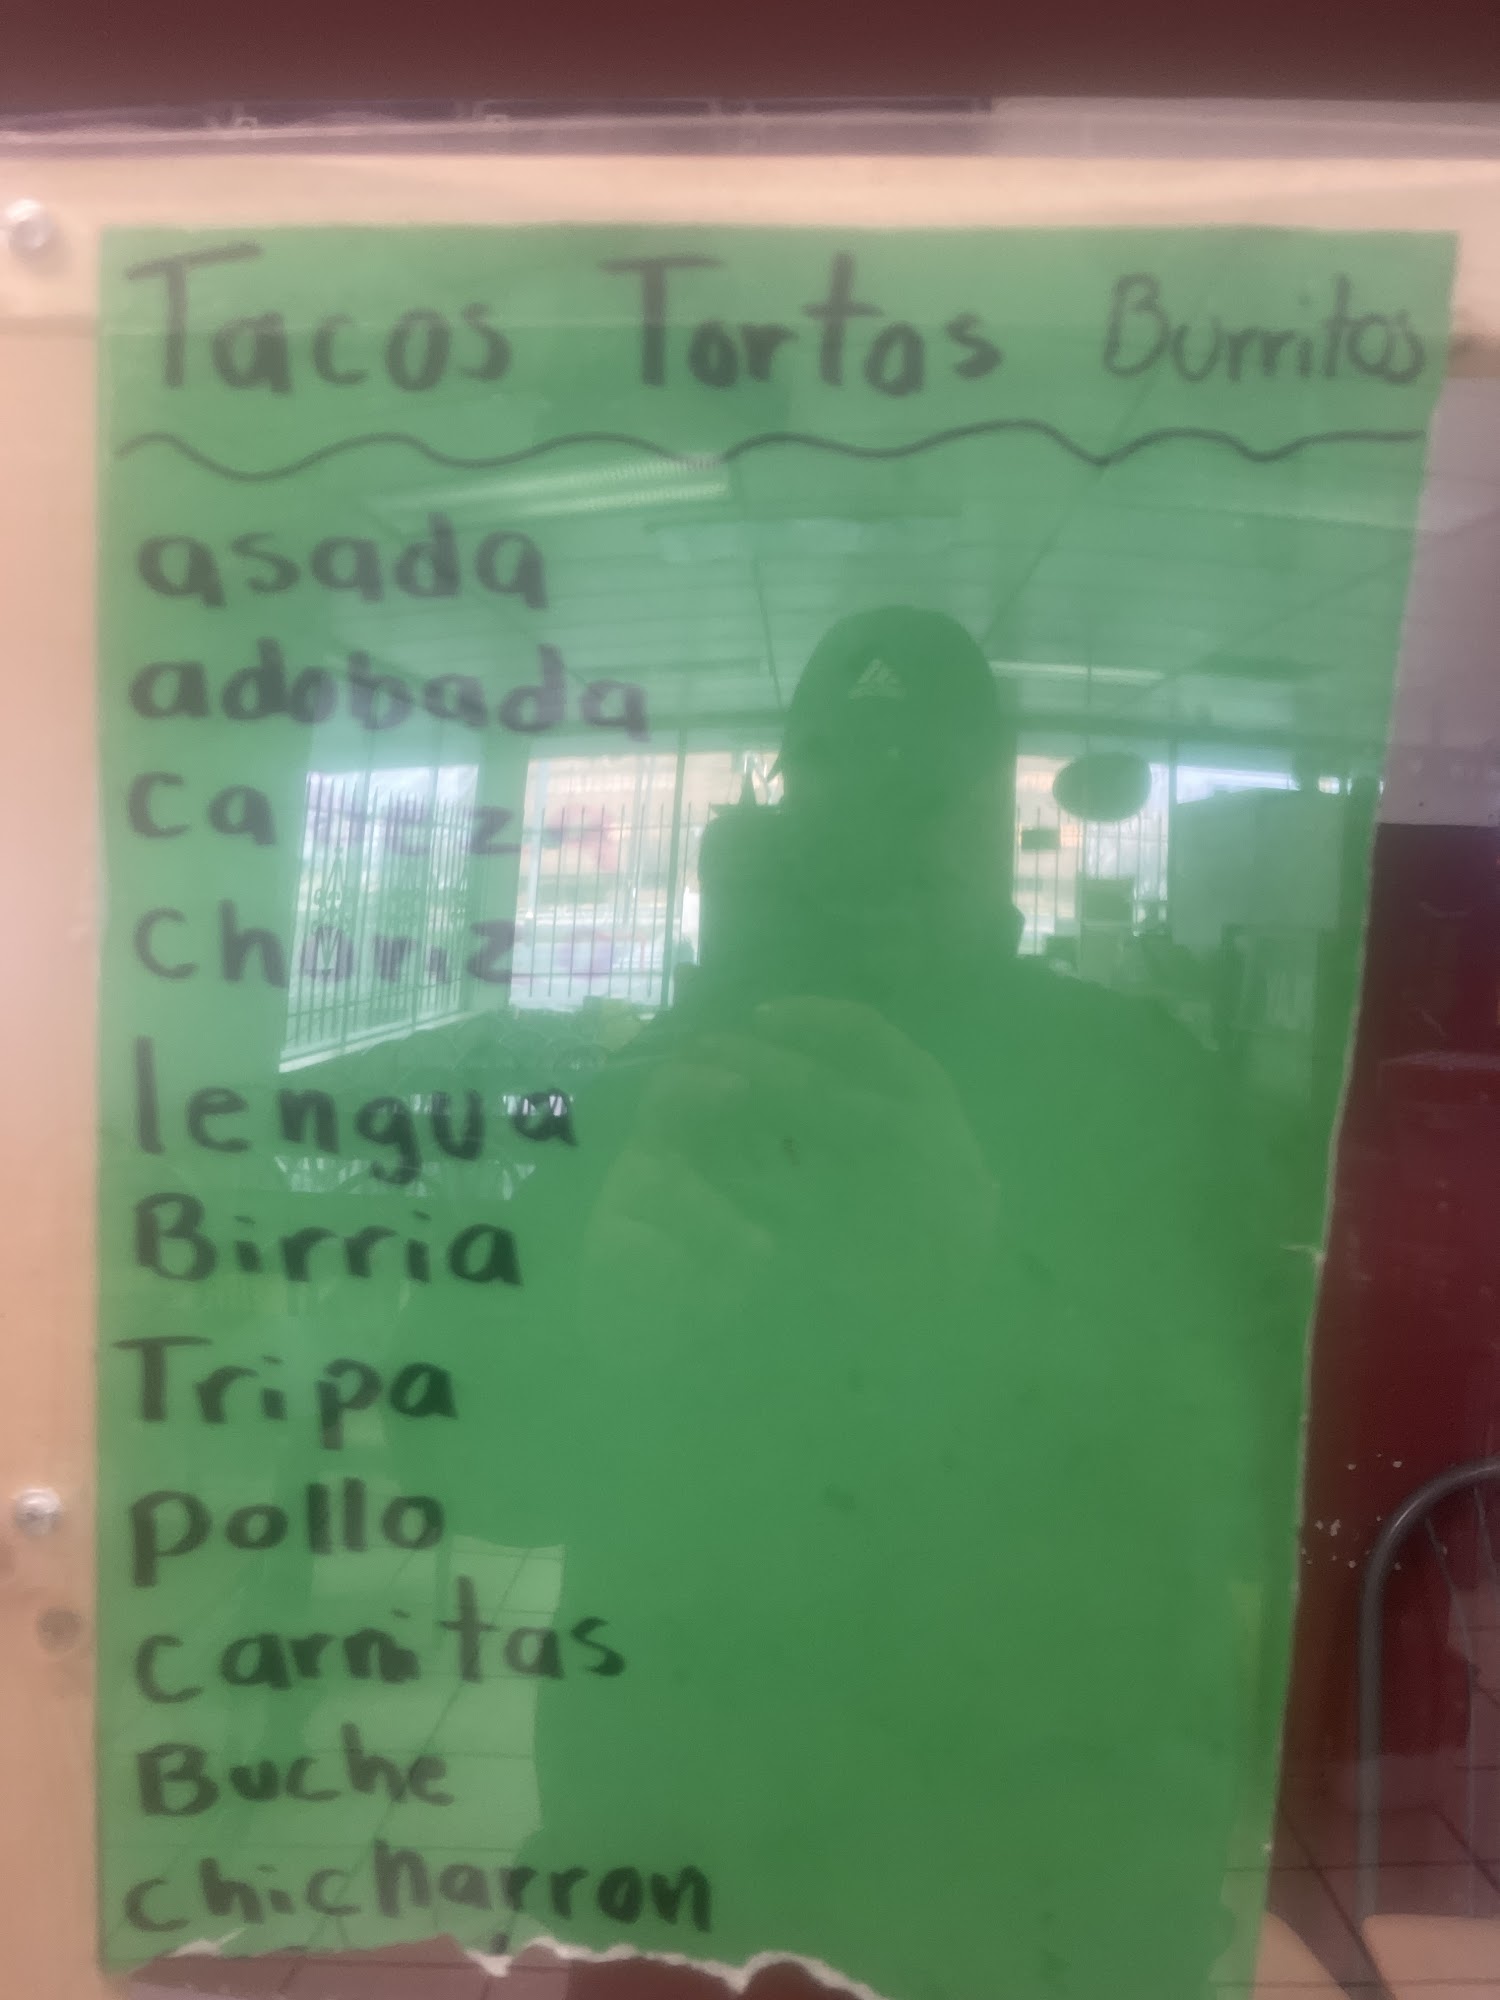 Tacos Tortas Burritos
asada
adobada
Cabez
Choriz
lengua
Birria
Tripa
Pollo
Carnitas
Buche
chicharron